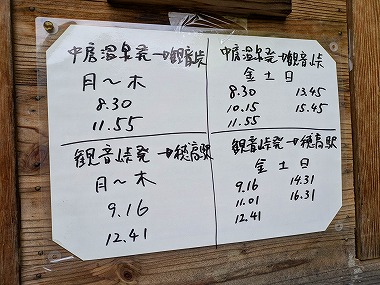 中房温泉発→観音峠
月～木
8.30
11.55
中房温泉発→観音峠
金土日
8.30 13.45
10.15 15.45
11.55
観音峠発→穂高駅
月～木
9.16
12.41
観音峠発→穂高駅
金土日
9.16 14.31
11.01 16.31
12.41